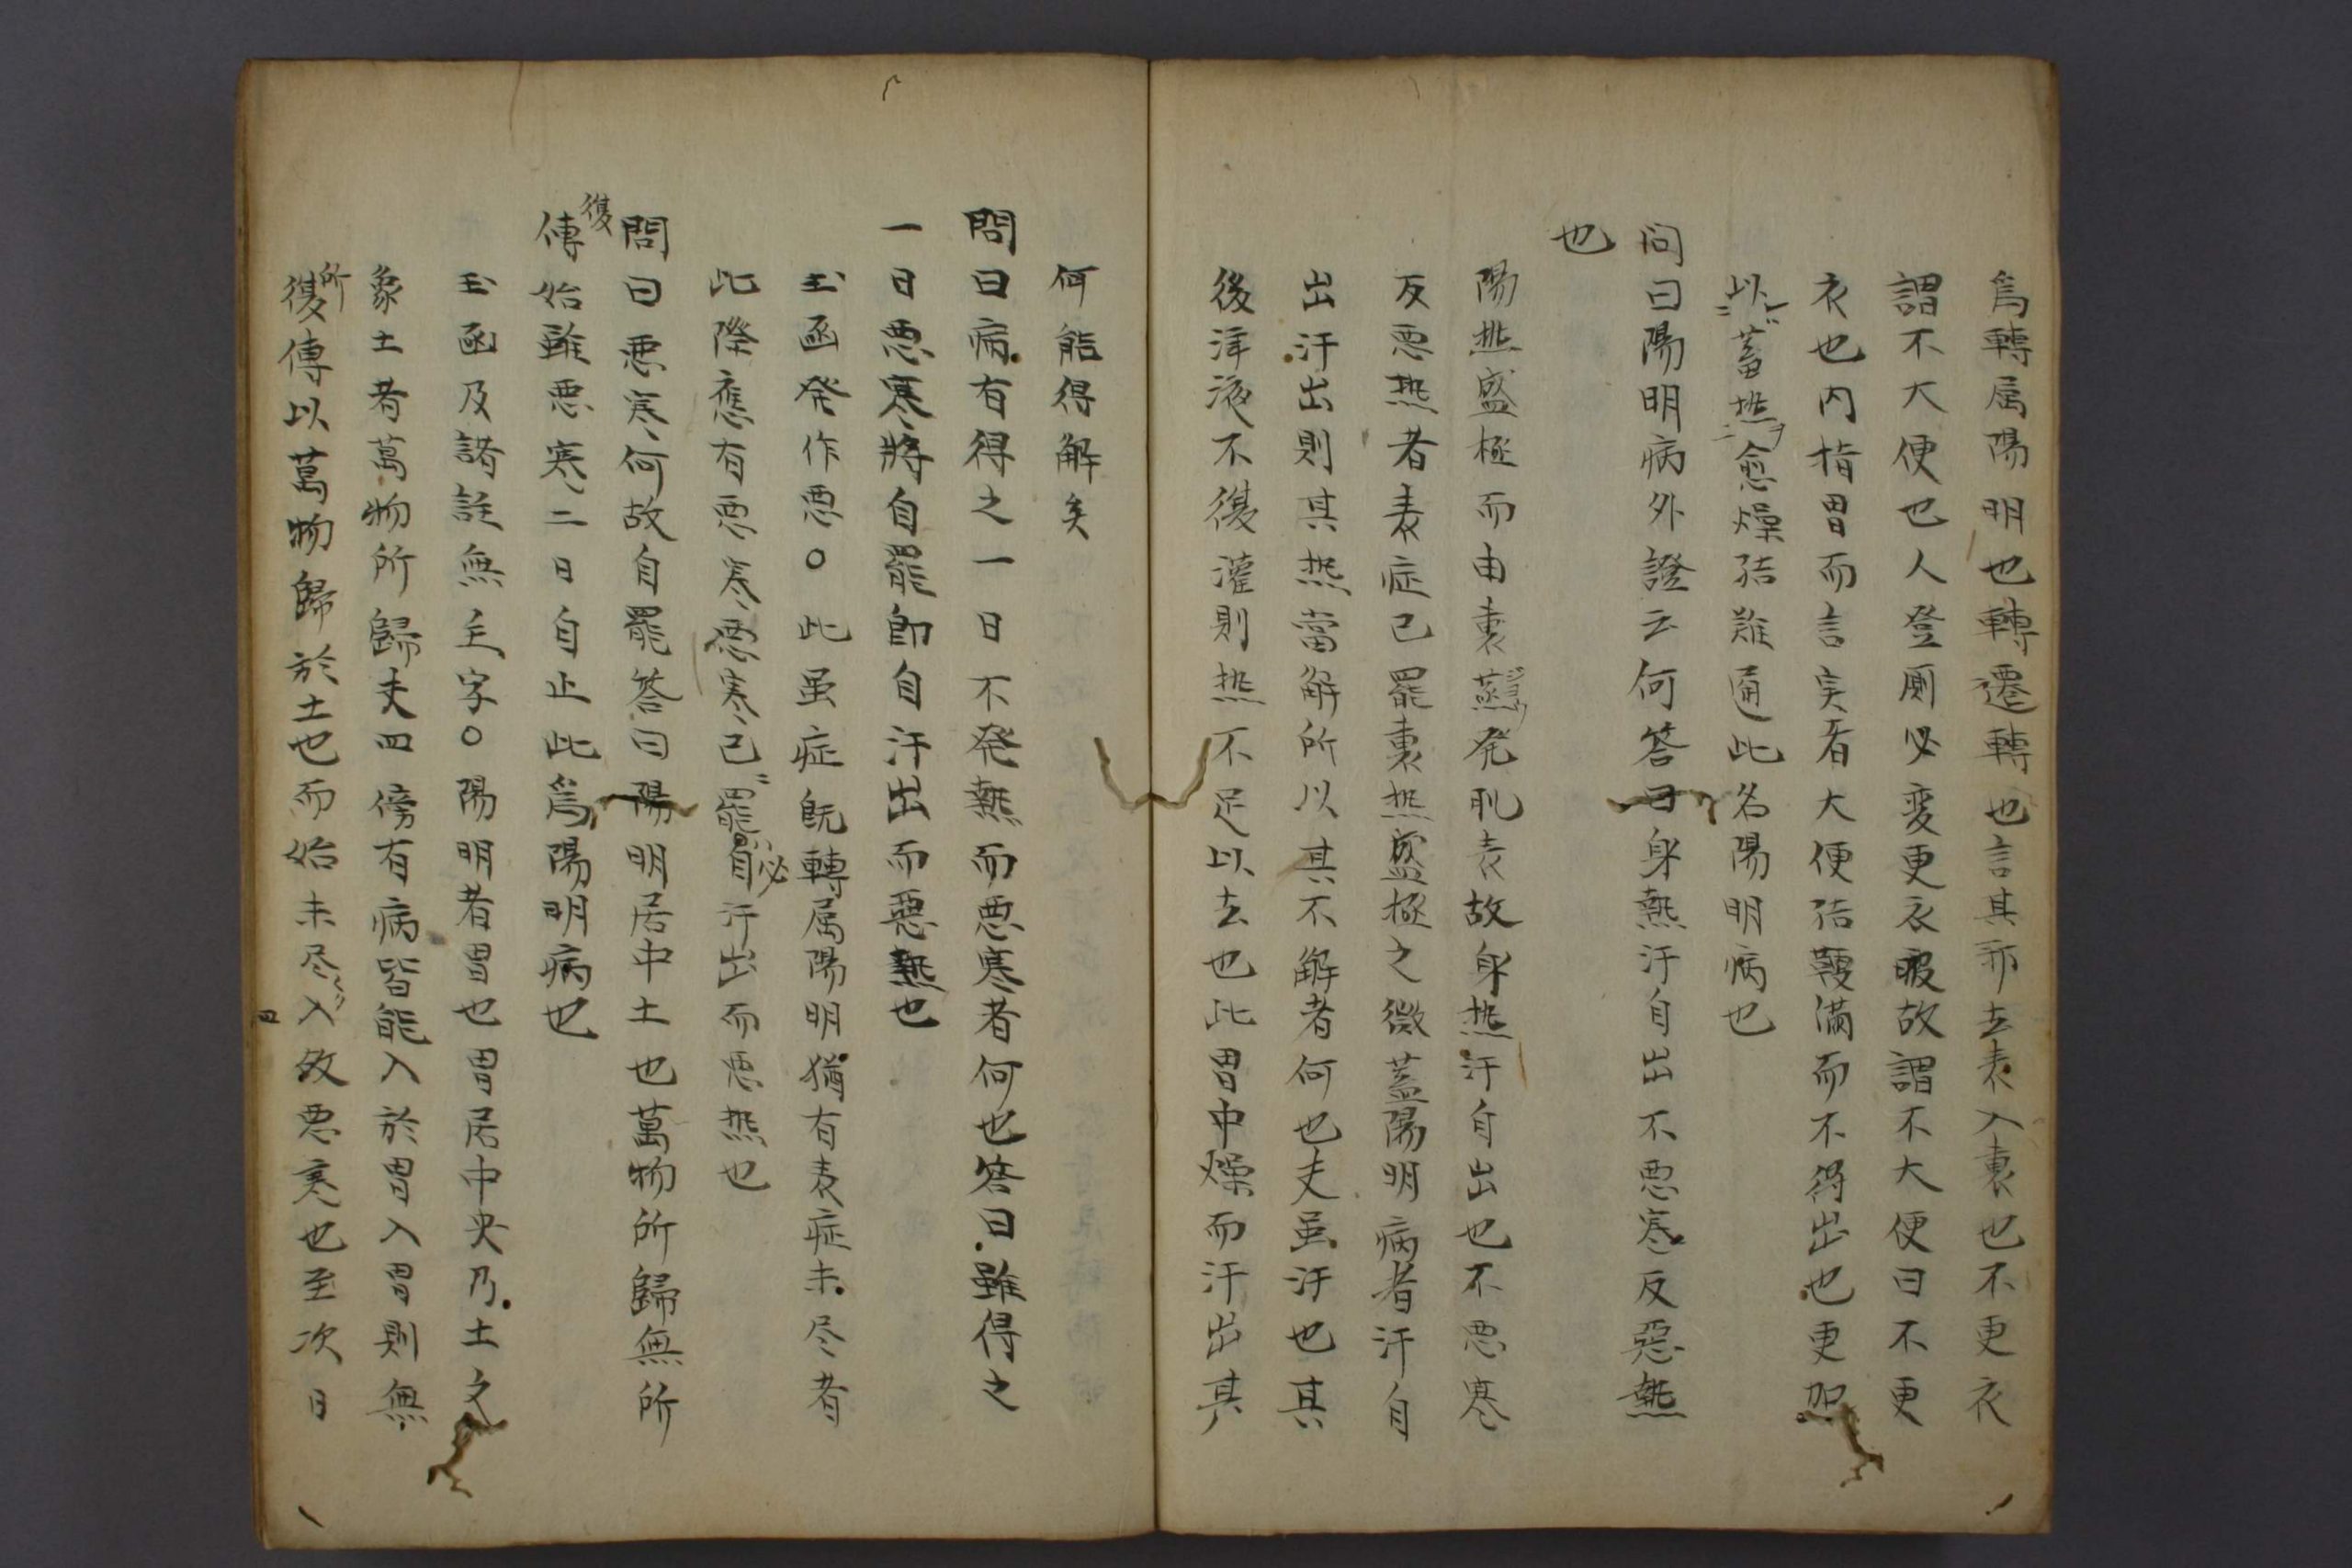 爲轉属陽明也轉遷轉也言其邪去表入裏也不更衣
謂不大便也人登厠必変更衣服故謂不大便曰不更
衣也内指胃而言実者大便秸鞕満而不得出也更加
以蓄熱愈燥秸難通此名陽明病也
问曰陽明病外證云何答曰身熱汗自出不悪寒反惡熱
也
陽熱盛極而由裏蒸発肌表故身熱汗自出也不悪寒
反悪熱者表症已罷裏熱盛極之微蓋陽明病者汗自
出汗出則其熱當解所以其不解者何也夫虽汗也其
後津液不復灌則熱不足以去也此胃中燥而汗出其
何能得解矣
問曰病有得之一日不発熱而悪寒者何也答曰雖得之
一日悪寒將自罷即自汗出而惡熱也
玉函発作悪○此虽症既轉属陽明猶有表症未尽者
此際應有悪寒悪寒已罷必自汗出而悪熱也
問曰悪寒何故自罷答曰陽明居中土也萬物所歸無所
復
傳始雖悪寒二日自止此爲陽明病也
玉函及諸註無主字○陽明者胃也胃居中央乃土之
象土者萬物所歸夫四傍有病皆能入於胃入胃則無
所
復傳以萬物歸於土也而始未尽入故悪寒也至次日
四